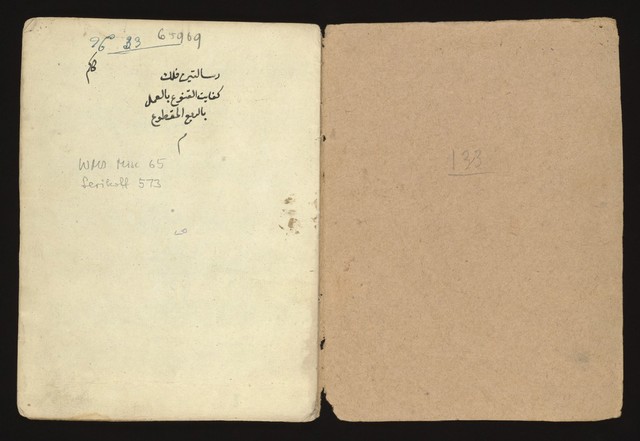 33 65969
رسالتين فلك
كفاية القنوع بالعمل
بالربع المقطوع
م
WMS
65
Serikoff 573
133